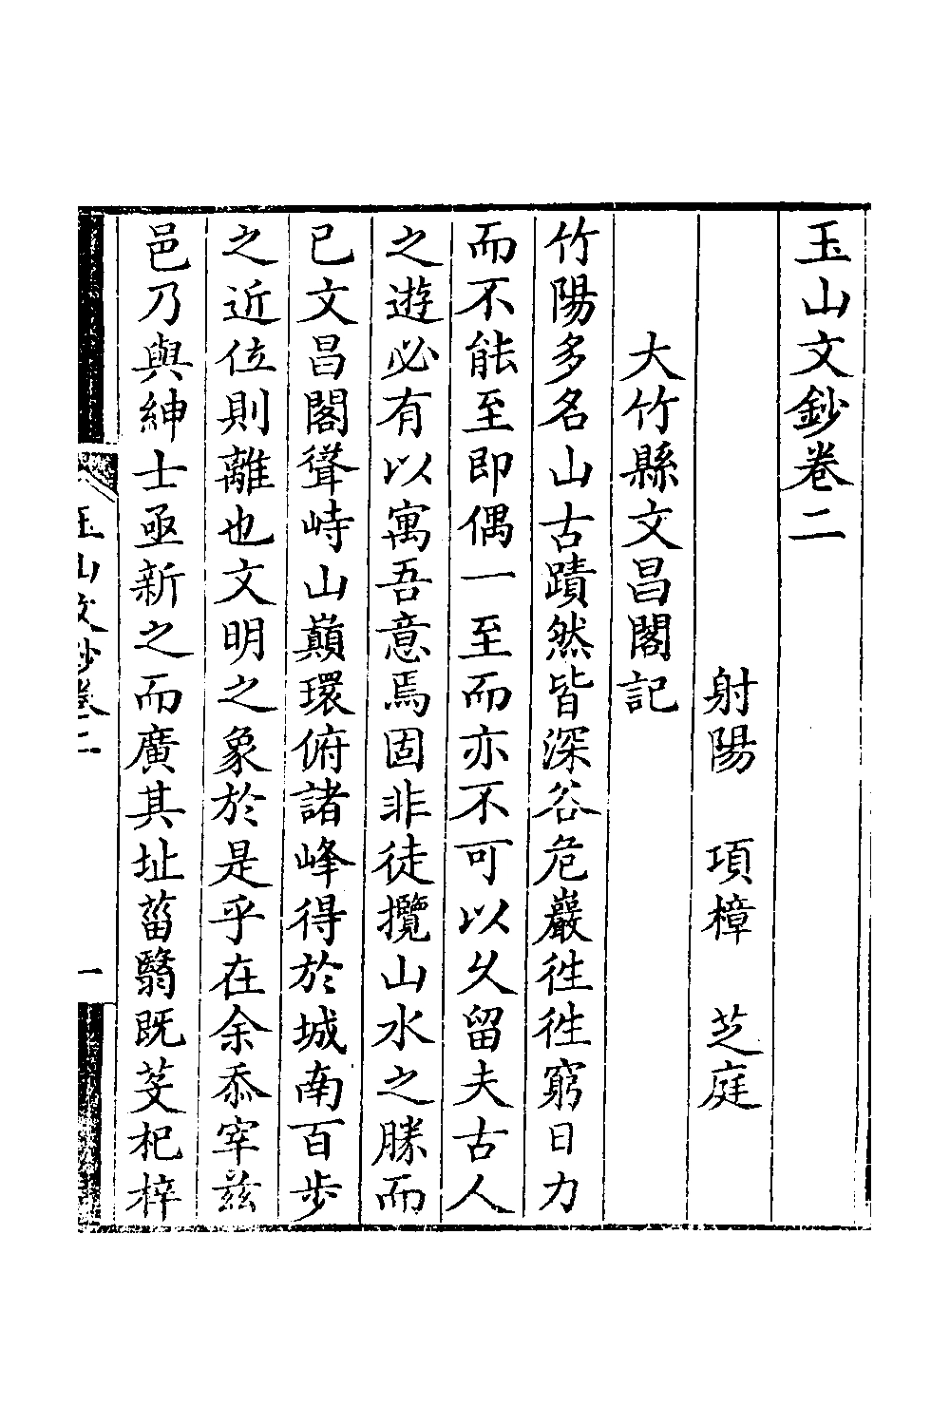 玉山文鈔卷二
射陽　項樟　芝庭
大竹縣文昌閣記
竹陽多名山古蹟然皆深谷危巖徃徃窮日力
而不能至即偶一至而亦不可以久留夫古人
之遊必有以寓吾意焉固非徒攬山水之勝而
已文昌閣聳峙山巔環俯諸峰得於城南百步
之近位則離也文明之象於是乎在余忝宰茲
邑乃與紳士亟新之而廣其址菑翳既芟杞梓
玉山文鈔卷二
一